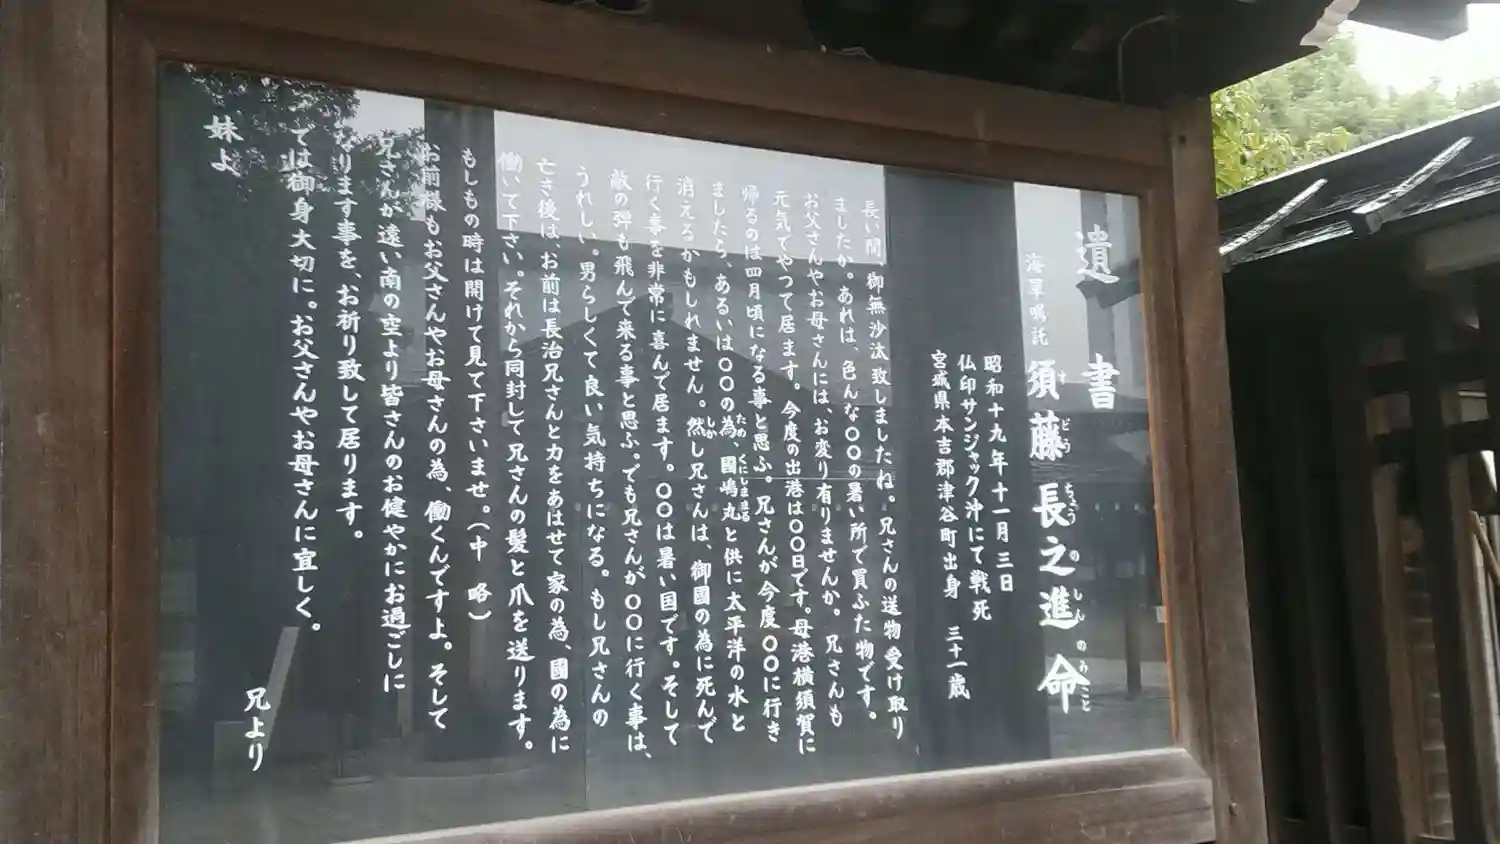 遺書
海軍嘱託 須藤長之進命
すどうちょうのしんのみこと
昭和十九年十一月三日
仏印サンジャック沖にて戦死
宮城県本吉郡津谷町出身 三十一歳
長い間、御無沙汰致しましたね。兄さんの送物受け取り
ましたか。あれは、色んな〇〇の暑い所で買ふた物です。
お父さんやお母さんには、お変り有りませんか。兄さんも
元気でやつて居ます。今度の出港は〇〇日です。母港横須賀に
帰るのは四月頃になる事と思ふ。兄さんが今度〇〇に行き
ましたら、あるいは〇〇の為、國嶋丸と供に太平洋の水と
ため くにしままる
消えるかもしれません。然し兄さんは、御國の為に死んで
しか
行く事を非常に喜んで居ます。〇〇は暑い国です。そして
敵の弾も飛んで来る事と思ふ。でも兄さんが〇〇に行く事は、
うれしい。男らしくて良い気持ちになる。もし兄さんの
亡き後は、お前は長治兄さんと力をあはせて家の為、國の為に
働いて下さい。それから同封して兄さんの髪と爪を送ります。
もしもの時は開けて見て下さいませ。(中 略)
お前様もお父さんやお母さんの為、働くんですよ。そして
兄さんが遠い南の空より皆さんのお健やかにお過ごしに
なります事を、お祈り致して居ります。
では御身大切に。お父さんやお母さんに宜しく。
兄より
妹よ